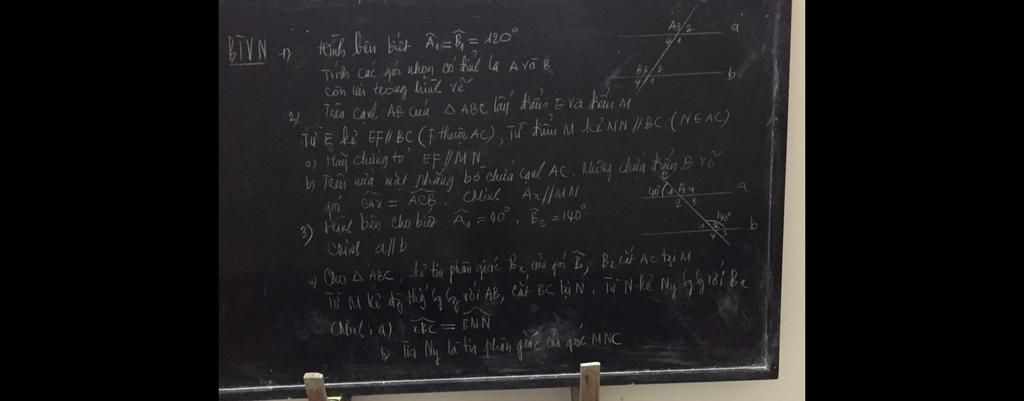 BTVN 1) Hình bên biết Â₁ = B̂₁ = 120°
Tính các góc nhọn có đỉnh là A và B
còn lại trong hình vẽ
2) Trên cạnh AB của △ ABC lấy điểm E và điểm M
Từ E kẻ EF // BC (F thuộc AC), Từ điểm M kẻ MN // BC (N ∈ AC)
a) Hãy chứng tỏ EF // MN
b) Trên nửa mặt phẳng bờ chứa cạnh AC. Không chứa điểm B vẽ
góc CAx = ACB. CMinh Ax // MN
3) Hình bên cho biết Â₁ = 40°, B̂₂ = 140°
CMinh a // b
4) Cho △ ABC, kẻ tia phân giác Bx của góc B̂, Bx cắt AC tại M
Từ M kẻ đg thg sg sg với AB, cắt BC tại N, Từ N kẻ Ny sg sg với Bx
CMinh: a) xBC = BMN
b) Tia Ny là tia phân giác của góc MNC
A 3 2
4 1
a
B 3 2
4 1
b
40° 1 A 4
2 3
a
140°
1 2
4
b